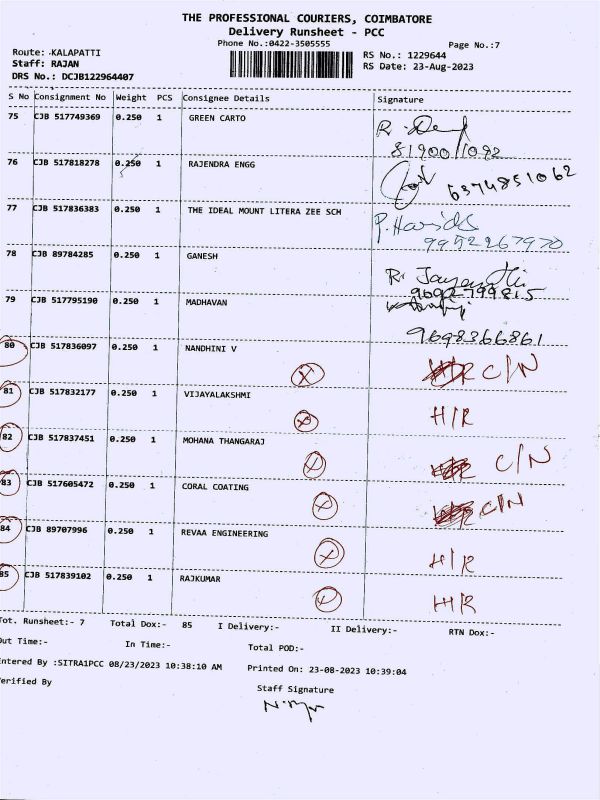 THE PROFESSIONAL COURIERS, COIMBATORE
Delivery Runsheet - PCC
Phone No.:0422-3505555
Page No.:7
Route: KALAPATTI
RS No.: 1229644
Staff: RAJAN
RS Date: 23-Aug-2023
DRS No.: DCJB122964407
S No Consignment No Weight PCS Consignee Details Signature
75 CJB 517749369 0.250 1 GREEN CARTO R.
81900/1092
76 CJB 517818278 0.250 1 RAJENDRA ENGG 6374851062
77 CJB 517836383 0.250 1 THE IDEAL MOUNT LITERA ZEE SCH P.
9952267970
78 CJB 89784285 0.250 1 GANESH R.
9692799815
79 CJB 517795190 0.250 1 MADHAVAN
9698366861
80 CJB 517836097 0.250 1 NANDHINI V X C/N
81 CJB 517832177 0.250 1 VIJAYALAKSHMI X H/R
82 CJB 517837451 0.250 1 MOHANA THANGARAJ X C/N
83 CJB 517605472 0.250 1 CORAL COATING X C/N
84 CJB 89707996 0.250 1 REVAA ENGINEERING X H/R
85 CJB 517839102 0.250 1 RAJKUMAR X H/R
Tot. Runsheet:- 7 Total Dox:- 85 I Delivery:- II Delivery:- RTN Dox:-
Out Time:- In Time:- Total POD:-
Entered By :SITRA1PCC 08/23/2023 10:38:10 AM Printed On: 23-08-2023 10:39:04
Verified By
Staff Signature